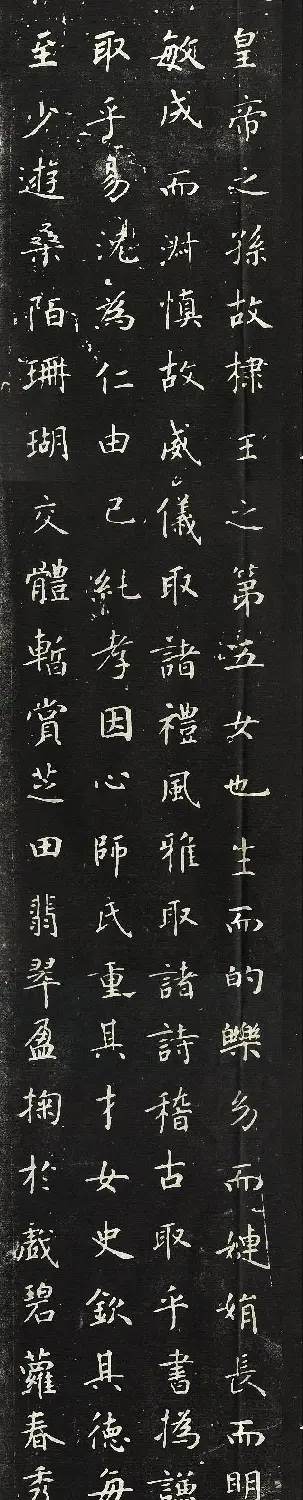 皇帝之孫故棣王之第五女也生而的皪幼而婕娟長而明
敏成而淑慎故威儀取諸禮風雅取諸詩稽古取乎書撝謙
取乎易洗為仁由己純孝因心師氏重其才女史欽其德每
至少遊桑陌珊瑚交體暫賞芝田翡翠盈掬於戲碧蘿春秀